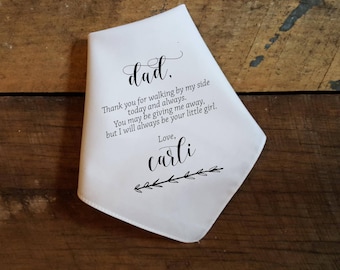 dad,
Thank you for walking by my side
today and always.
You may be giving me away,
but I will always be your little girl.
Love,
carli